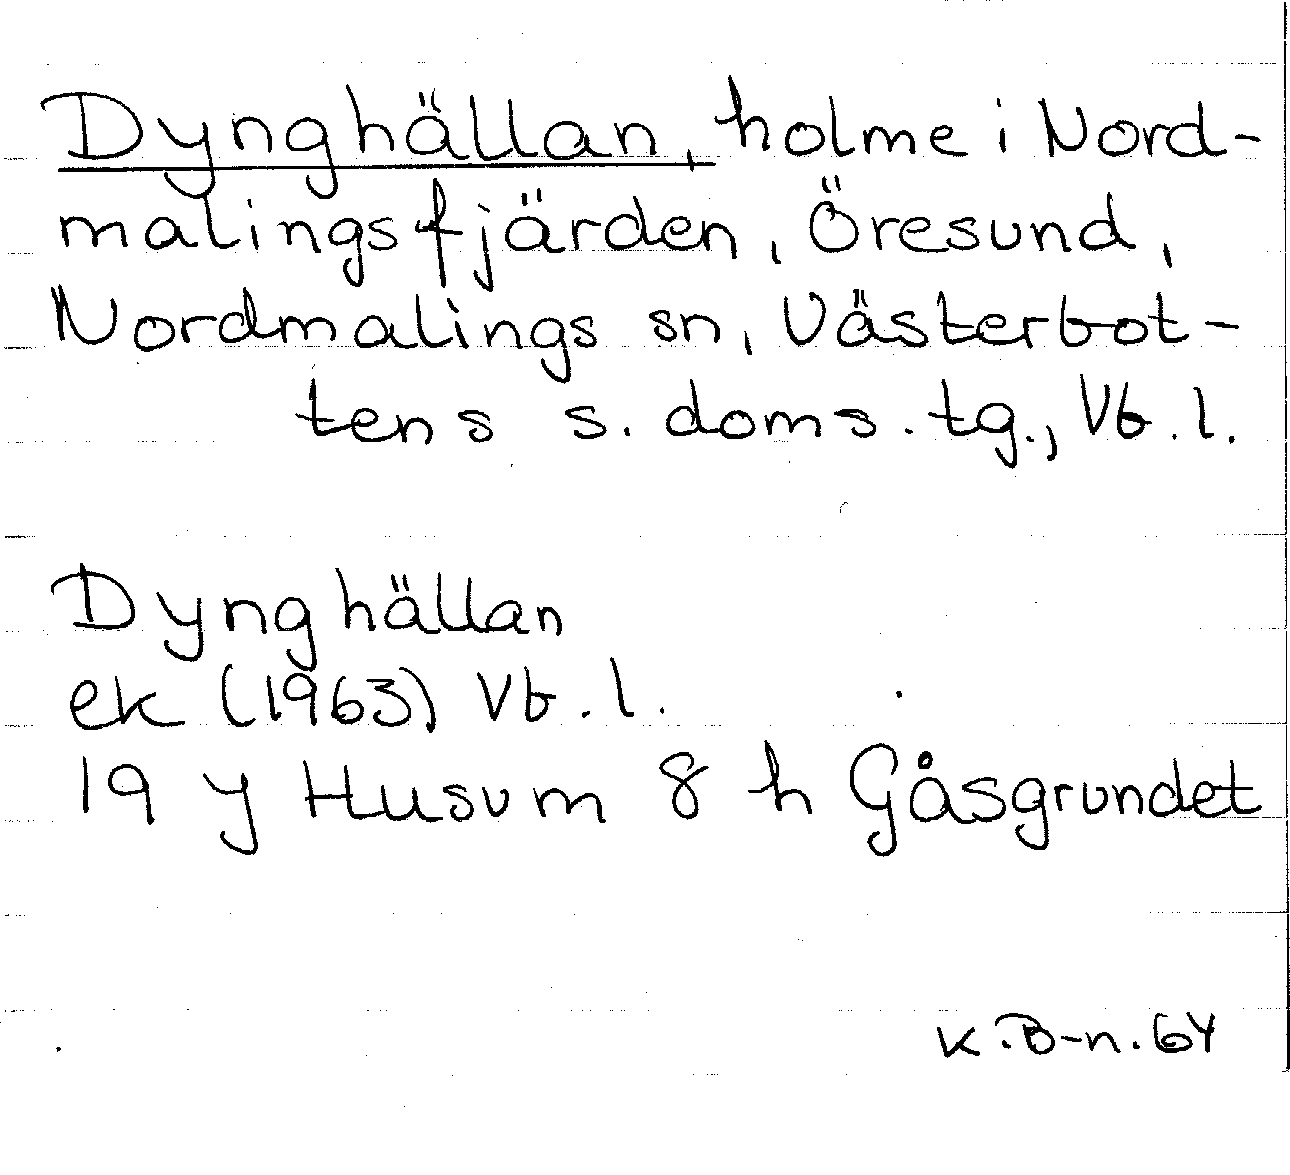 Dynghällan, holme i Nord-
malingsfjärden, Öresund,
Nordmalings sn, Västerbot-
tens s. doms. tg., Vb. l.
Dynghällan
ek (1963) Vb. l.
19 y Husum 8 h Gåsgrundet
K.B-n. 64